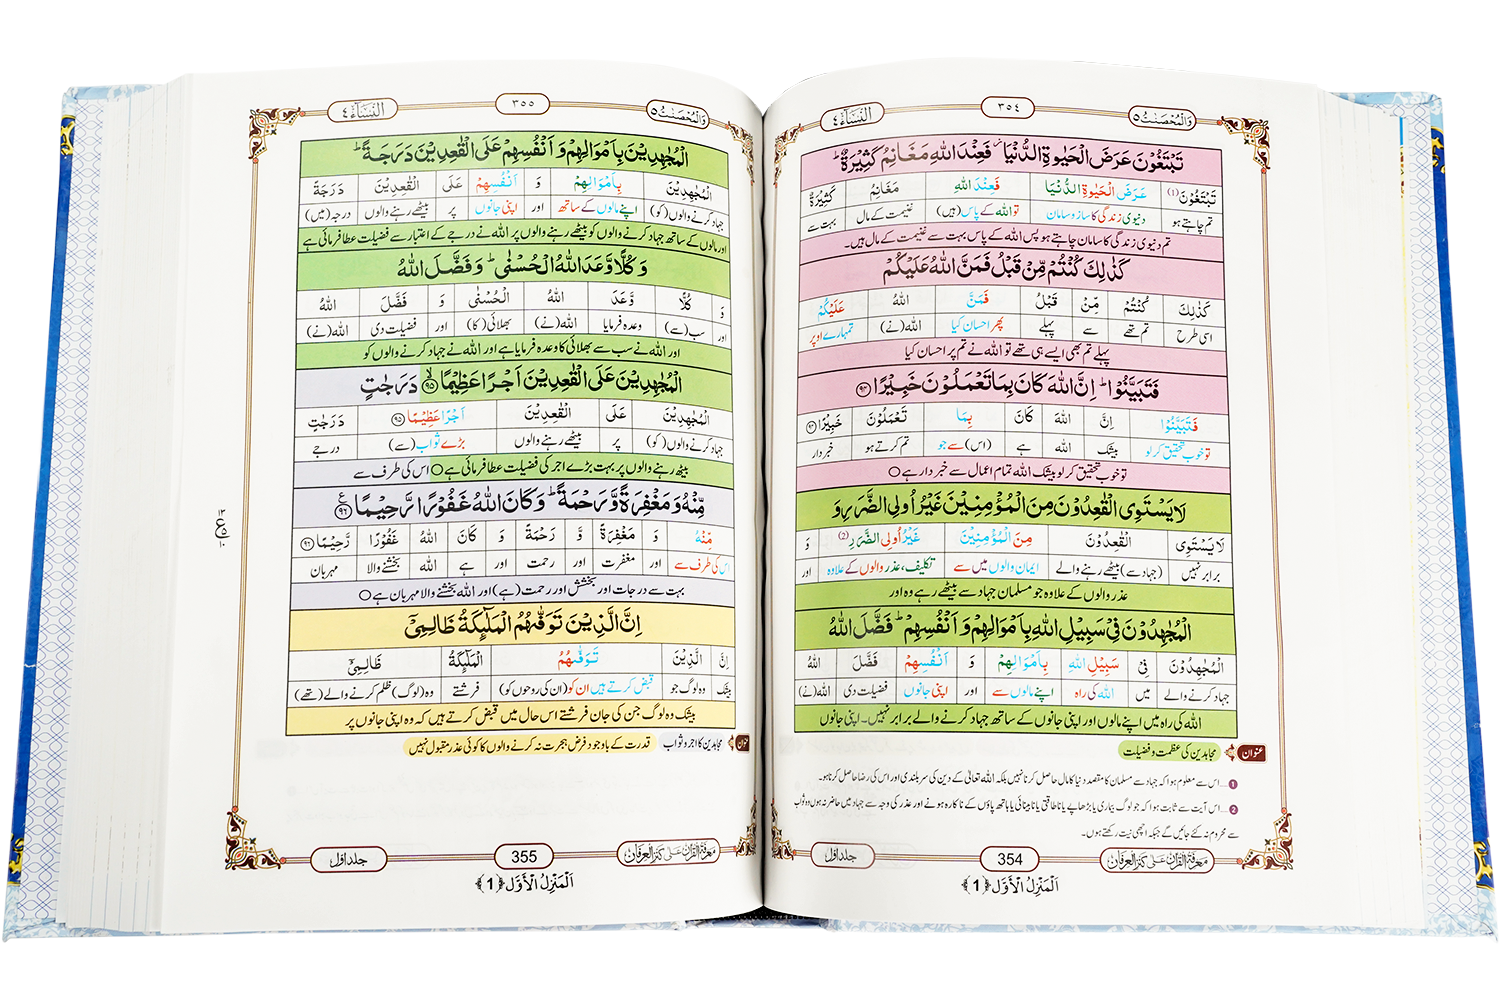 وَالْمُحْصَنٰتُ ٥
٣٥٤
اَلنِّسَآء ٤
تَبْتَغُوْنَ عَرَضَ الْحَيٰوةِ الدُّنْيَا ۫ فَعِنْدَ اللّٰهِ مَغَانِمُ كَثِيْرَةٌ ؕ
تَبْتَغُوْنَ (1) عَرَضَ الْحَيٰوةِ الدُّنْيَا فَعِنْدَ اللّٰهِ مَغَانِمُ كَثِيْرَةٌ
تم چاہتے ہو دنیوی زندگی کا ساز و سامان تو اللہ کے پاس (ہیں) غنیمت کے مال بہت سے
تم دنیوی زندگی کا سامان چاہتے ہو پس اللہ کے پاس بہت سے غنیمت کے مال ہیں۔
كَذٰلِكَ كُنْتُمْ مِّنْ قَبْلُ فَمَنَّ اللّٰهُ عَلَيْكُمْ
كَذٰلِكَ كُنْتُمْ مِّنْ قَبْلُ فَمَنَّ اللّٰهُ عَلَيْكُمْ
اسی طرح تم تھے سے پہلے پھر احسان کیا اللہ (نے) تمہارے اوپر
پہلے تم بھی ایسے ہی تھے تو اللہ نے تم پر احسان کیا
فَتَبَيَّنُوْا ؕ اِنَّ اللّٰهَ كَانَ بِمَا تَعْمَلُوْنَ خَبِيْرًا ﴿٩٤﴾
فَتَبَيَّنُوْا اِنَّ اللّٰهَ كَانَ بِمَا تَعْمَلُوْنَ خَبِيْرًا ﴿٩٤﴾
تو خوب تحقیق کر لو بیشک اللہ ہے (اس) سے جو تم کرتے ہو خبردار
تو خوب تحقیق کر لو بیشک اللہ تمام اعمال سے خبردار ہے ○
لَا يَسْتَوِى الْقٰعِدُوْنَ مِنَ الْمُؤْمِنِيْنَ غَيْرُ اُولِى الضَّرَرِ وَ
لَا يَسْتَوِى الْقٰعِدُوْنَ مِنَ الْمُؤْمِنِيْنَ غَيْرُ اُولِى الضَّرَرِ (2) وَ
برابر نہیں (جہاد سے) بیٹھے رہنے والے ایمان والوں میں سے تکلیف، عذر والوں کے علاوہ اور
عذر والوں کے علاوہ جو مسلمان جہاد سے بیٹھے رہے وہ اور
الْمُجٰهِدُوْنَ فِىْ سَبِيْلِ اللّٰهِ بِاَمْوَالِهِمْ وَ اَنْفُسِهِمْ ؕ فَضَّلَ اللّٰهُ
الْمُجٰهِدُوْنَ فِىْ سَبِيْلِ اللّٰهِ بِاَمْوَالِهِمْ وَ اَنْفُسِهِمْ فَضَّلَ اللّٰهُ
جہاد کرنے والے میں اللہ کی راہ اپنے مالوں سے اور اپنی جانوں فضیلت دی اللہ (نے)
اللہ کی راہ میں اپنے مالوں اور اپنی جانوں کے ساتھ جہاد کرنے والے برابر نہیں۔ اپنی جانوں
عنوان مجاہدین کی عظمت و فضیلت
1 ...اس سے معلوم ہوا کہ جہاد سے مسلمان کا مقصد دنیا کا مال حاصل کرنا نہیں بلکہ اللہ تعالیٰ کے دین کی سربلندی اور اس کی رضا حاصل کرنا ہو۔
2 ...اس آیت سے ثابت ہوا کہ جو لوگ بیماری یا بڑھاپے یا ناطاقتی یا نابینائی یا ہاتھ پاؤں کے ناکارہ ہونے اور عذر کی وجہ سے جہاد میں حاضر نہ ہوں وہ ثواب
سے محروم نہ کئے جائیں گے جبکہ اچھی نیت رکھتے ہوں۔
معرفۃ القرآن علی کنز العرفان
354
جلد اول
اَلْمَنْزِلُ الْاَوَّل ﴿1﴾
وَالْمُحْصَنٰتُ ٥
٣٥٥
اَلنِّسَآء ٤
الْمُجٰهِدِيْنَ بِاَمْوَالِهِمْ وَ اَنْفُسِهِمْ عَلَى الْقٰعِدِيْنَ دَرَجَةً ؕ
الْمُجٰهِدِيْنَ بِاَمْوَالِهِمْ وَ اَنْفُسِهِمْ عَلَى الْقٰعِدِيْنَ دَرَجَةً
جہاد کرنے والوں (کو) اپنے مالوں کے ساتھ اور اپنی جانوں پر بیٹھے رہنے والوں درجہ (میں)
اور مالوں کے ساتھ جہاد کرنے والوں کو بیٹھے رہنے والوں پر اللہ نے درجے کے اعتبار سے فضیلت عطا فرمائی ہے
وَ كُلًّا وَّعَدَ اللّٰهُ الْحُسْنٰى ؕ وَ فَضَّلَ اللّٰهُ
وَ كُلًّا وَّعَدَ اللّٰهُ الْحُسْنٰى وَ فَضَّلَ اللّٰهُ
اور سب (سے) وعدہ فرمایا اللہ (نے) بھلائی (کا) اور فضیلت دی اللہ (نے)
اور اللہ نے سب سے بھلائی کا وعدہ فرمایا ہے اور اللہ نے جہاد کرنے والوں کو
الْمُجٰهِدِيْنَ عَلَى الْقٰعِدِيْنَ اَجْرًا عَظِيْمًا ﴿٩٥﴾ۙ دَرَجٰتٍ
الْمُجٰهِدِيْنَ عَلَى الْقٰعِدِيْنَ اَجْرًا عَظِيْمًا ﴿٩٥﴾ دَرَجٰتٍ
جہاد کرنے والوں (کو) پر بیٹھے رہنے والوں بڑے ثواب (سے) درجے
بیٹھ رہنے والوں پر بہت بڑے اجر کی فضیلت عطا فرمائی ہے ○ اس کی طرف سے
مِّنْهُ وَ مَغْفِرَةً وَّ رَحْمَةً ؕ وَ كَانَ اللّٰهُ غَفُوْرًا رَّحِيْمًا ﴿٩٦﴾ ع
مِّنْهُ وَ مَغْفِرَةً وَّ رَحْمَةً وَ كَانَ اللّٰهُ غَفُوْرًا رَّحِيْمًا ﴿٩٦﴾
اس کی طرف سے اور مغفرت اور رحمت اور ہے اللہ بخشنے والا مہربان
١٣ ع ١٠
بہت سے درجات اور بخشش اور رحمت (ہے) اور اللہ بخشنے والا مہربان ہے ○
اِنَّ الَّذِيْنَ تَوَفّٰىهُمُ الْمَلٰٓئِكَةُ ظَالِمِىْٓ
اِنَّ الَّذِيْنَ تَوَفّٰىهُمُ الْمَلٰٓئِكَةُ ظَالِمِىْٓ
بیشک وہ لوگ جو قبض کرتے ہیں ان کو (ان کی روحوں کو) فرشتے وہ (لوگ) ظلم کرنے والے (تھے)
بیشک وہ لوگ جن کی جان فرشتے اس حال میں قبض کرتے ہیں کہ وہ اپنی جانوں پر
عنوان مجاہدین کا اجر و ثواب قدرت کے باوجود فرض ہجرت نہ کرنے والوں کا کوئی عذر مقبول نہیں
معرفۃ القرآن علی کنز العرفان
355
جلد اول
اَلْمَنْزِلُ الْاَوَّل ﴿1﴾